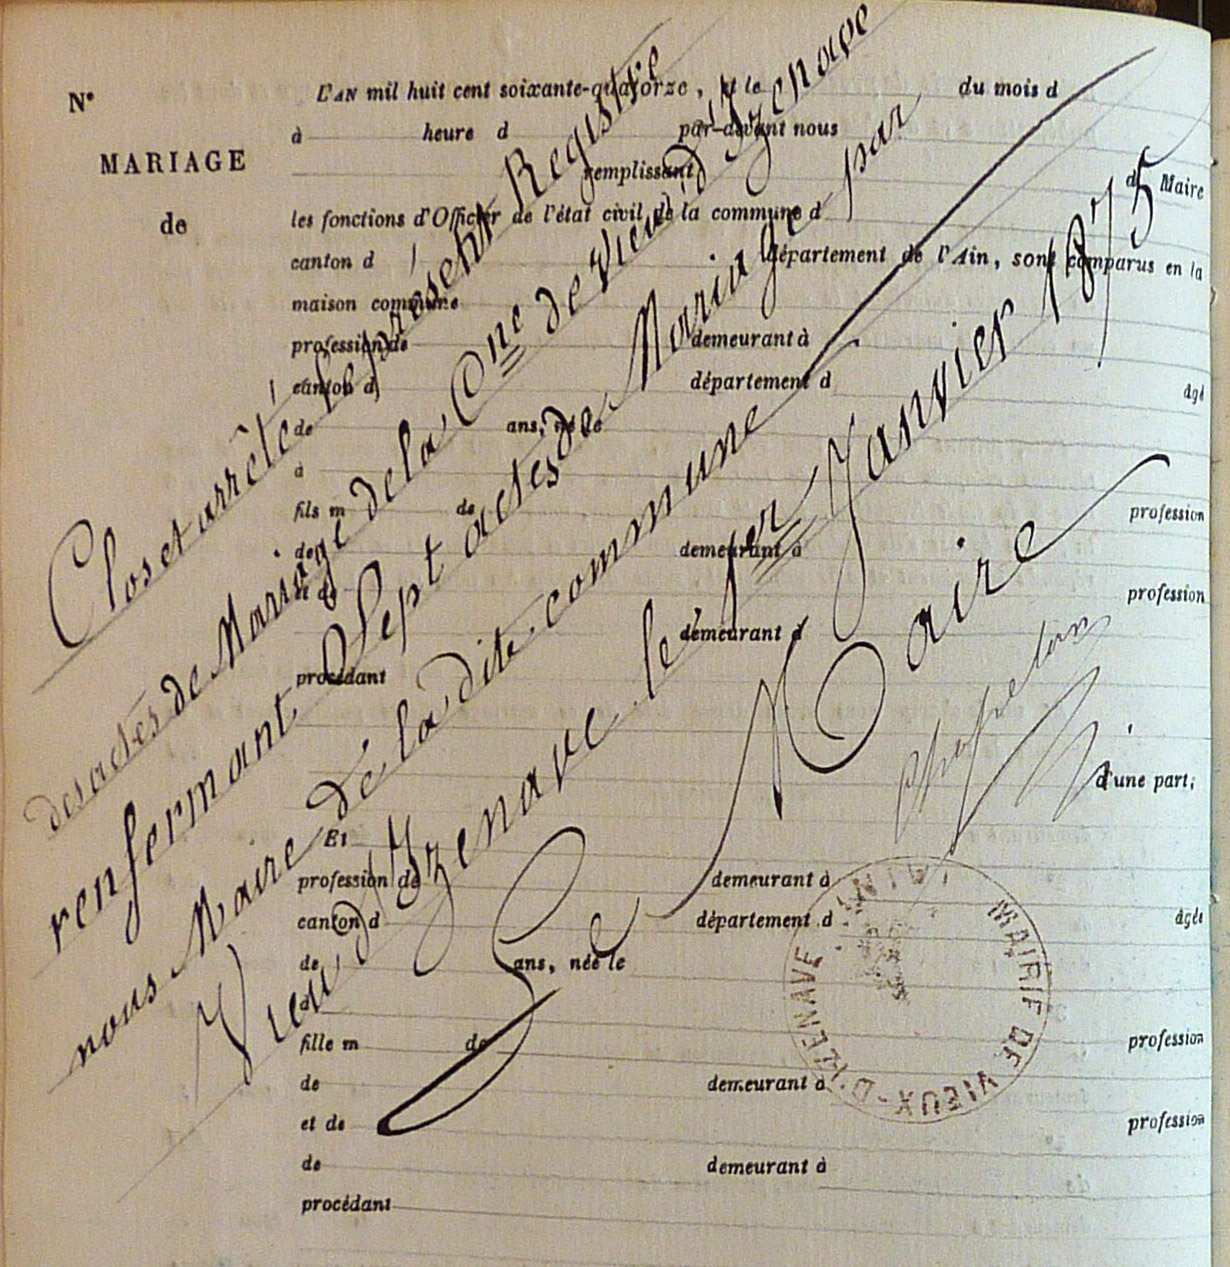 N°
MARIAGE
de
L'AN mil huit cent soixante-quatorze, et le du mois d
à heure d par-devant nous
remplissant
d Maire
les fonctions d'Officier de l'état civil de la commune d
canton d département de l'Ain, sont comparus en la
maison commune
profession de demeurant à
canton d département d âgé
de ans, né le
à
fils m de profession
de demeurant à
et de profession
demeurant à
procédant
d'une part;
Et
profession de demeurant à
canton d département d âgée
de ans, née le
à
fille m de profession
de demeurant à
et de profession
de demeurant à
procédant
Clos et arrêté le présent Registre
des actes de Mariage de la Cne de Vieu d'Izenave
renfermant Sept actes de Mariage par
nous Maire de la dite commune
Vieu d'Izenave le 1er Janvier 1875
Le Maire
MAIRIE DE VIEUX-D'IZENAVE